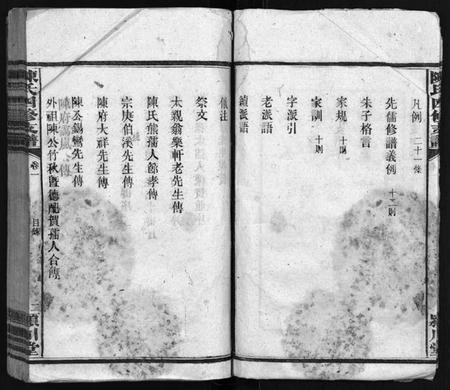 陳氏四修支譜
潁川堂
凡例 二十一條
先儒修譜義例 十二則
朱子格言
家規 十則
家訓 十則
字派引
老派語
續派語
祭文
太親翁樂軒老先生傳
陳氏熊孺人餘孝傳
宗庚伯溪先生傳
陳府大祥先生傳
外祖陳公竹秋暨德配賀孺人合傳
陳氏四修支譜
卷一
目錄
二
潁川堂